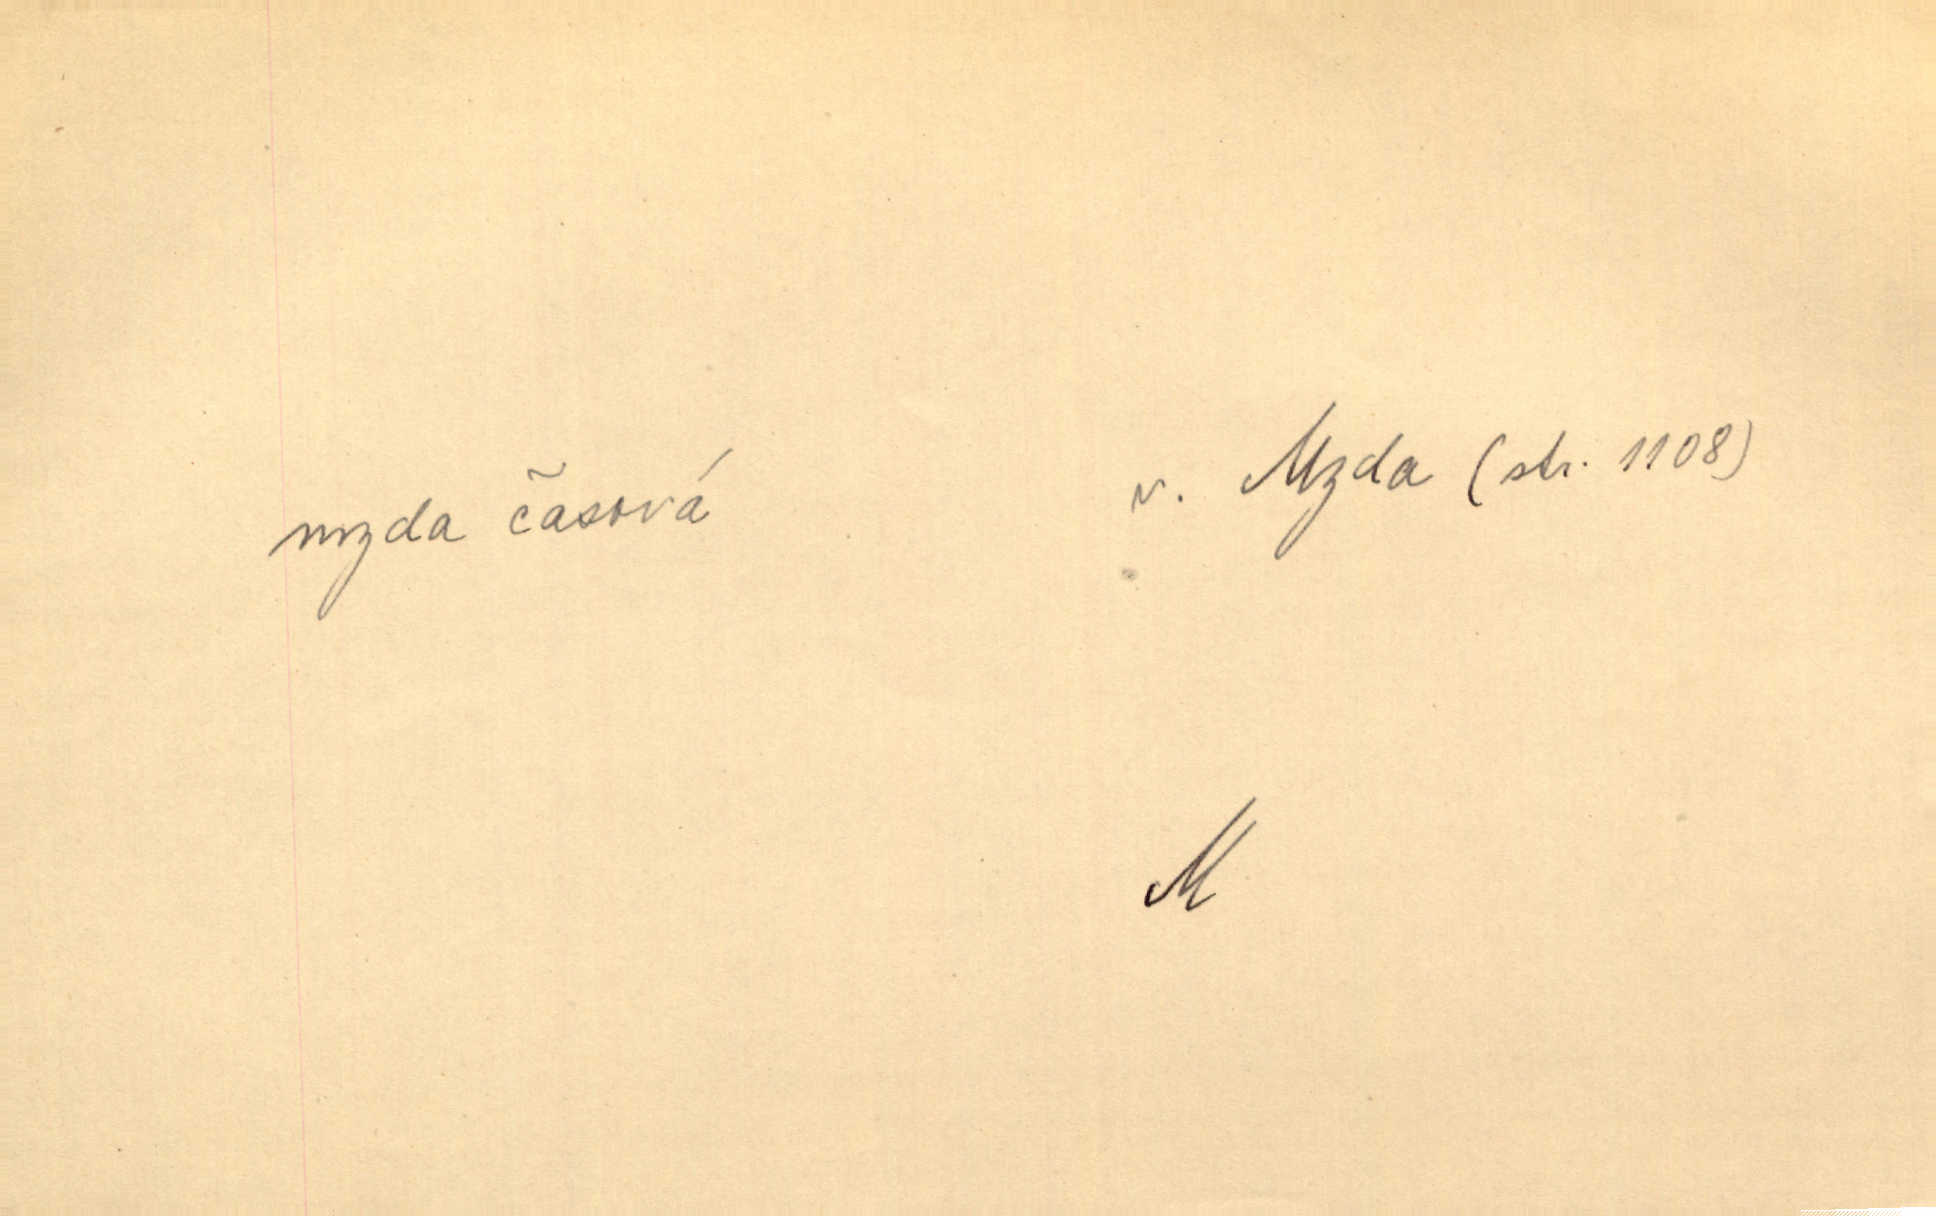 mzda časová v. Mzda (str. 1108)
M